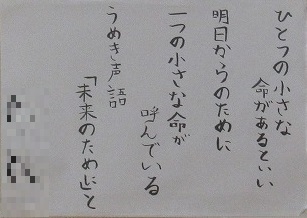 ひとつの小さな
命があるといい
明日からのために
一つの小さな命が
呼んでいる
うめき声語
「未来のために」と